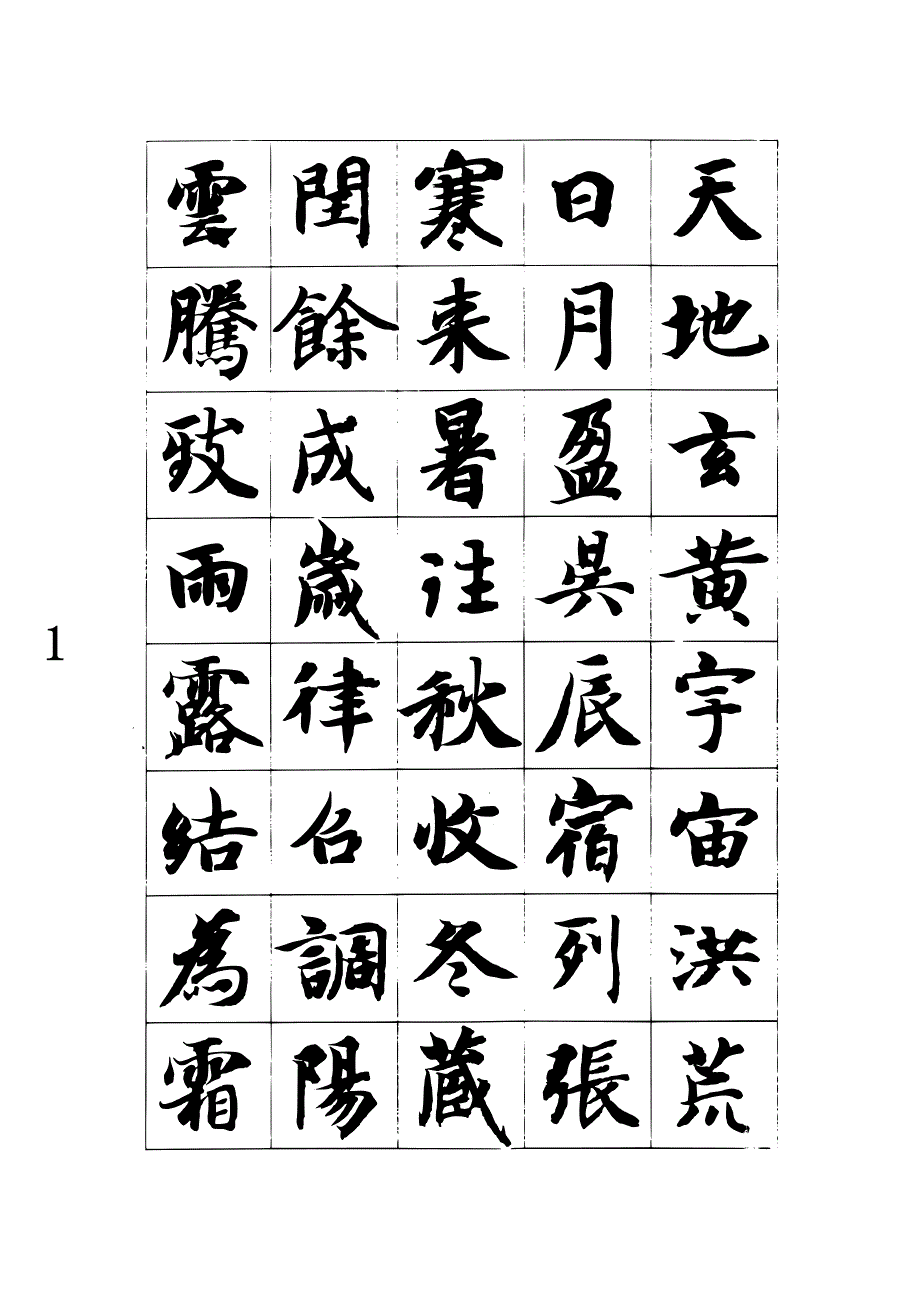 天地玄黄宇宙洪荒
日月盈昃辰宿列張
寒来暑往秋收冬蔵
閏餘成歲律召調陽
雲騰致雨露結為霜
1